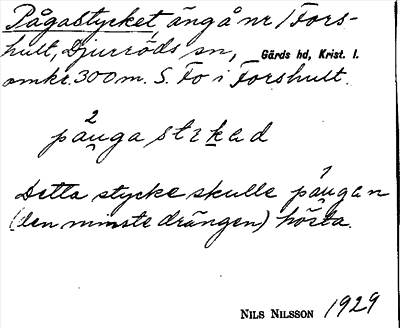 Pågastycket, äng å nr 1 Fors-
hult, Djurröds sn, Gärds hd, Krist. l.
omkr. 300 m. S. Fo i Forshult.
2
pa̯uga stɛkəd
1
Detta stycke skulle på̯ugan
(den minste drängen) hösta.
NILS NILSSON 1929